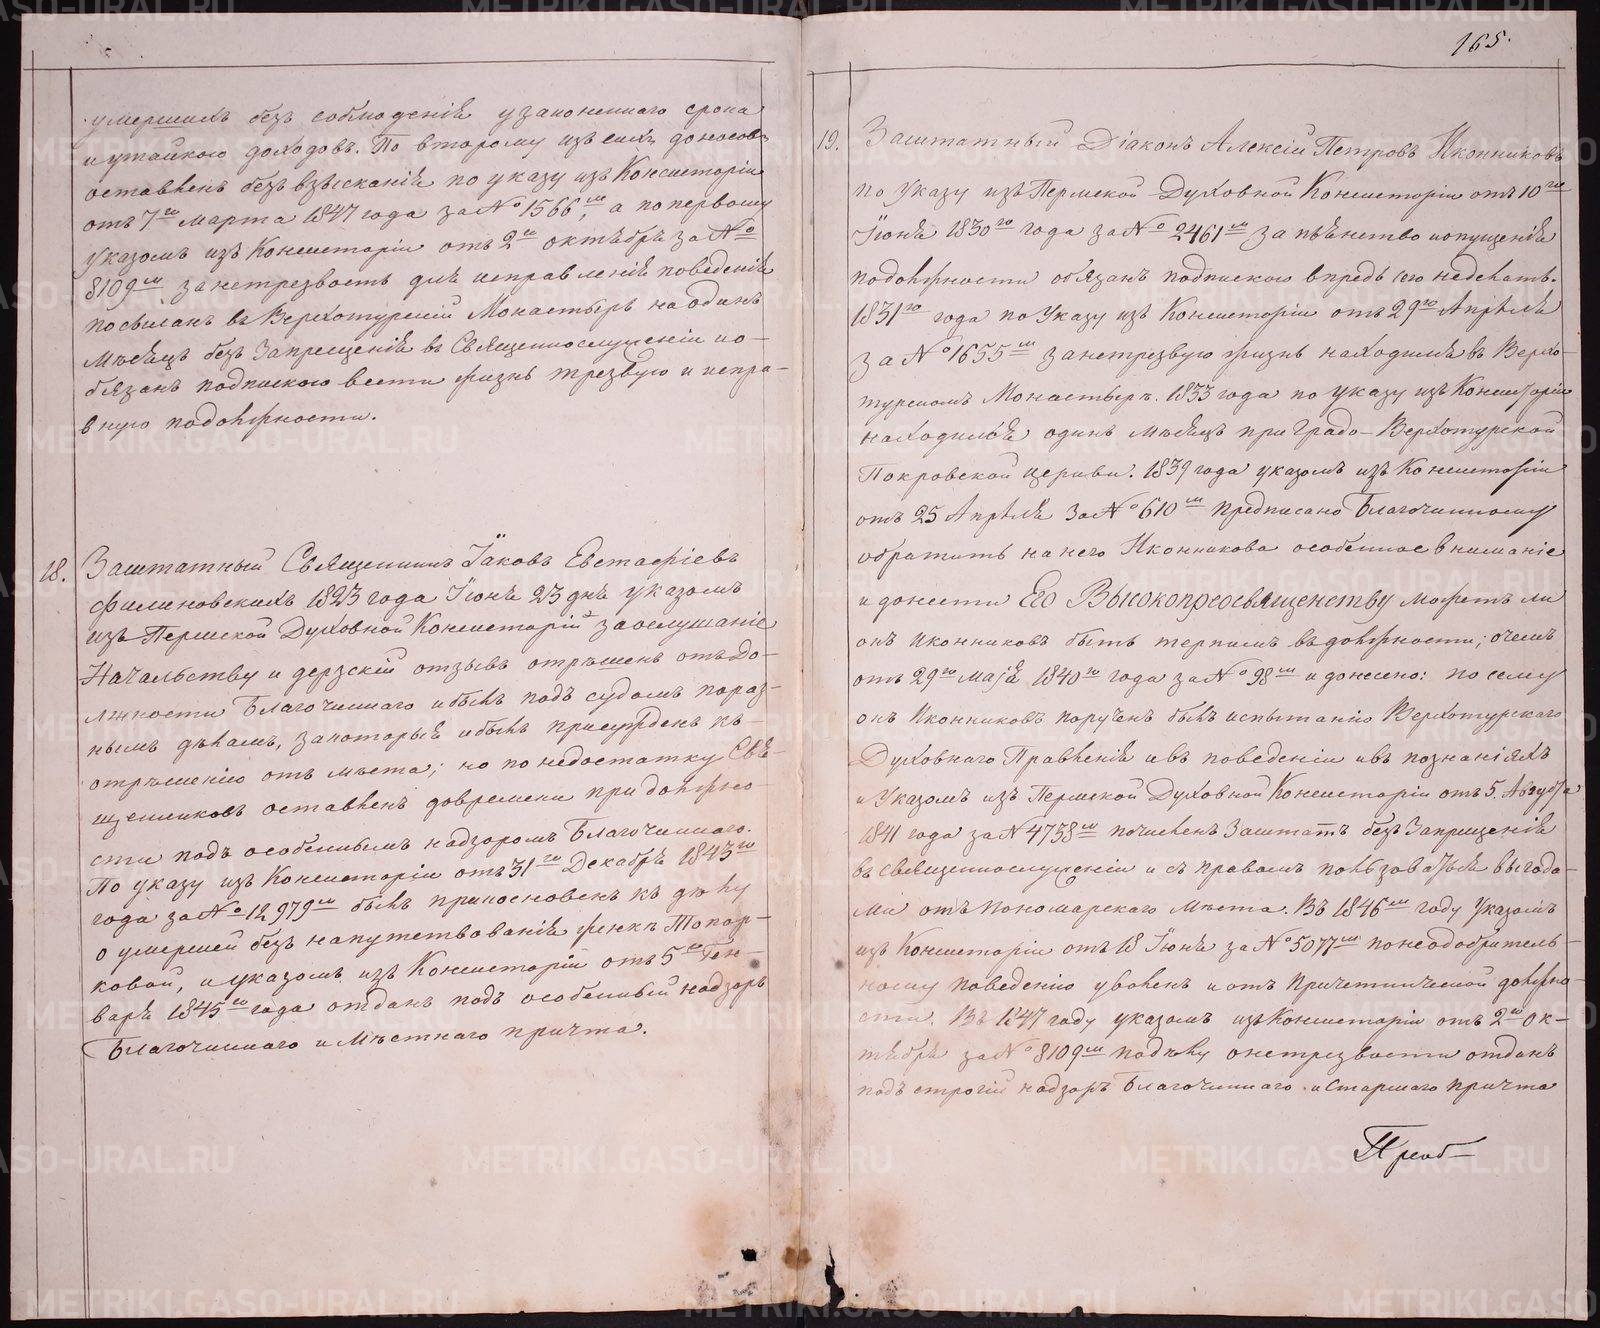 умершихъ безъ соблюденія узаконеннаго срока
и утайкою доходовъ. По второму изъ сихъ доносовъ
оставленъ безъ взысканія по указу изъ Консисторіи
отъ 7го марта 1847 года за № 1566мъ, а по первому
Указомъ изъ Консисторіи отъ 2го октября за №
8109мъ за нетрезвость для исправленія поведенія
посыланъ въ Верхотурскій Монастырь на одинъ
мѣсяцъ безъ Запрещенія въ Священнослуженіи и о-
бязанъ подпискою вести жизнь трезвую и испра-
вную по должности.
18. Заштатный Священникъ Іаковъ Евстафіевъ
Филиновскихъ 1823 года Іюня 23 дня указомъ
изъ Пермской Духовной Консисторіи за ослушаніе
Начальству и дерзскій отзывъ отрѣшенъ отъ до-
лжности Благочиннаго и былъ подъ судомъ по раз-
нымъ дѣламъ, за которыя и былъ присужденъ къ
отрѣшенію отъ мѣста; но по недостатку Свя-
щенниковъ оставленъ до времени при должно-
сти подъ особеннымъ надзоромъ Благочиннаго.
По указу изъ Консисторіи отъ 31го Декабря 1843го
года за № 12,979мъ былъ прикосновенъ къ дѣлу
о умершей безъ напутствованія женкѣ Топор-
ковой, и указомъ изъ Консисторіи отъ 5го Ген-
варя 1845го года отданъ подъ особенный надзоръ
Благочиннаго и Мѣстнаго причта.
165.
19. Заштатный Діаконъ Алексій Петровъ Иконниковъ
по Указу изъ Пермской Духовной Консисторіи отъ 10го
Іюня 1830го года за № 2461мъ за пьянство и опущенія
по должности обязанъ подпискою впредь сего не делать.
1831го года по Указу изъ Консисторіи отъ 29го Апрѣля
за № 1655мъ за нетрезвую жизнь находился въ Верхо-
турскомъ Монастырѣ. 1833 года по указу изъ Консисторіи
находился одинъ мѣсяцъ при Градо-Верхотурской
Покровской церкви. 1839 года указомъ изъ Консисторіи
отъ 25 Апрѣля за № 610мъ предписано Благочинному
обратить на него Иконникова особенное вниманіе
и донести Его Высокопреосвященству можетъ ли
онъ Иконниковъ быть терпимъ въ должности; о чемъ
отъ 29го Маія 1840го года за № 98мъ и донесено: по сему
онъ Иконниковъ порученъ былъ испытанію Верхотурскаго
Духовнаго Правленія и въ поведеніи и въ познаніяхъ
и Указомъ изъ Пермской Духовной Консисторіи отъ 5. Августа
1841 года за № 4758мъ почисленъ Заштатъ безъ Запрещенія
въ священнослуженіи и съ правомъ пользоваться выгода-
ми отъ пономарскаго мѣста. Въ 1846мъ году Указомъ
изъ Консисторіи отъ 18 Іюня за № 5077мъ по неодобритель-
ному поведенію уволенъ и отъ Причетнической должно-
сти. Въ 1847 году указомъ изъ Консисторіи отъ 2го Ок-
тября за № 8109мъ по дѣлу о нетрезвости отданъ
подъ строгій надзоръ Благочиннаго и Старшаго причта
METRIKI.GASO-URAL.RU